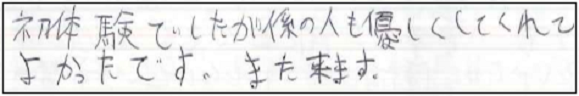 初体験でしたが係の人も優しくしてくれて
よかったです。また来ます。